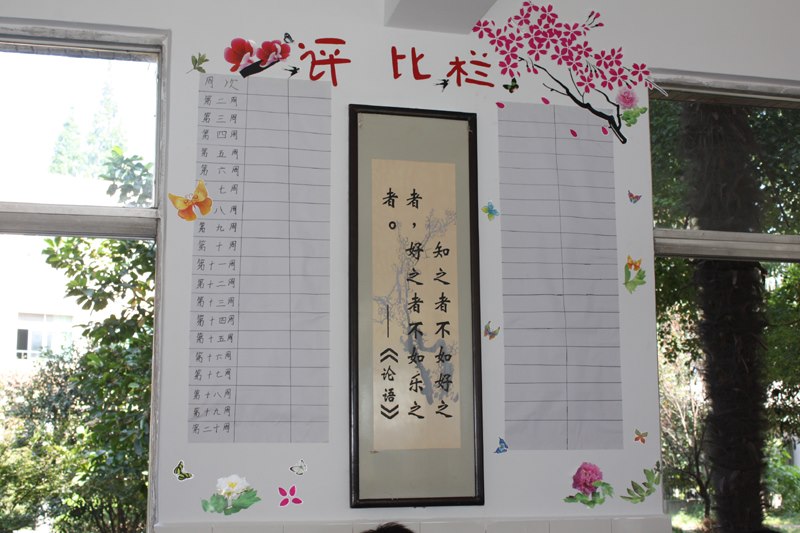 评比栏
周次
第二周
第三周
第四周
第五周
第六周
七周
八周
第九周
第十周
第十一周
第十二周
第十三周
第十四周
第十五周
第十六周
第十七周
第十八周
第十九周
第二十周
知之者不如好之
者，好之者不如乐之
者。
——《论语》